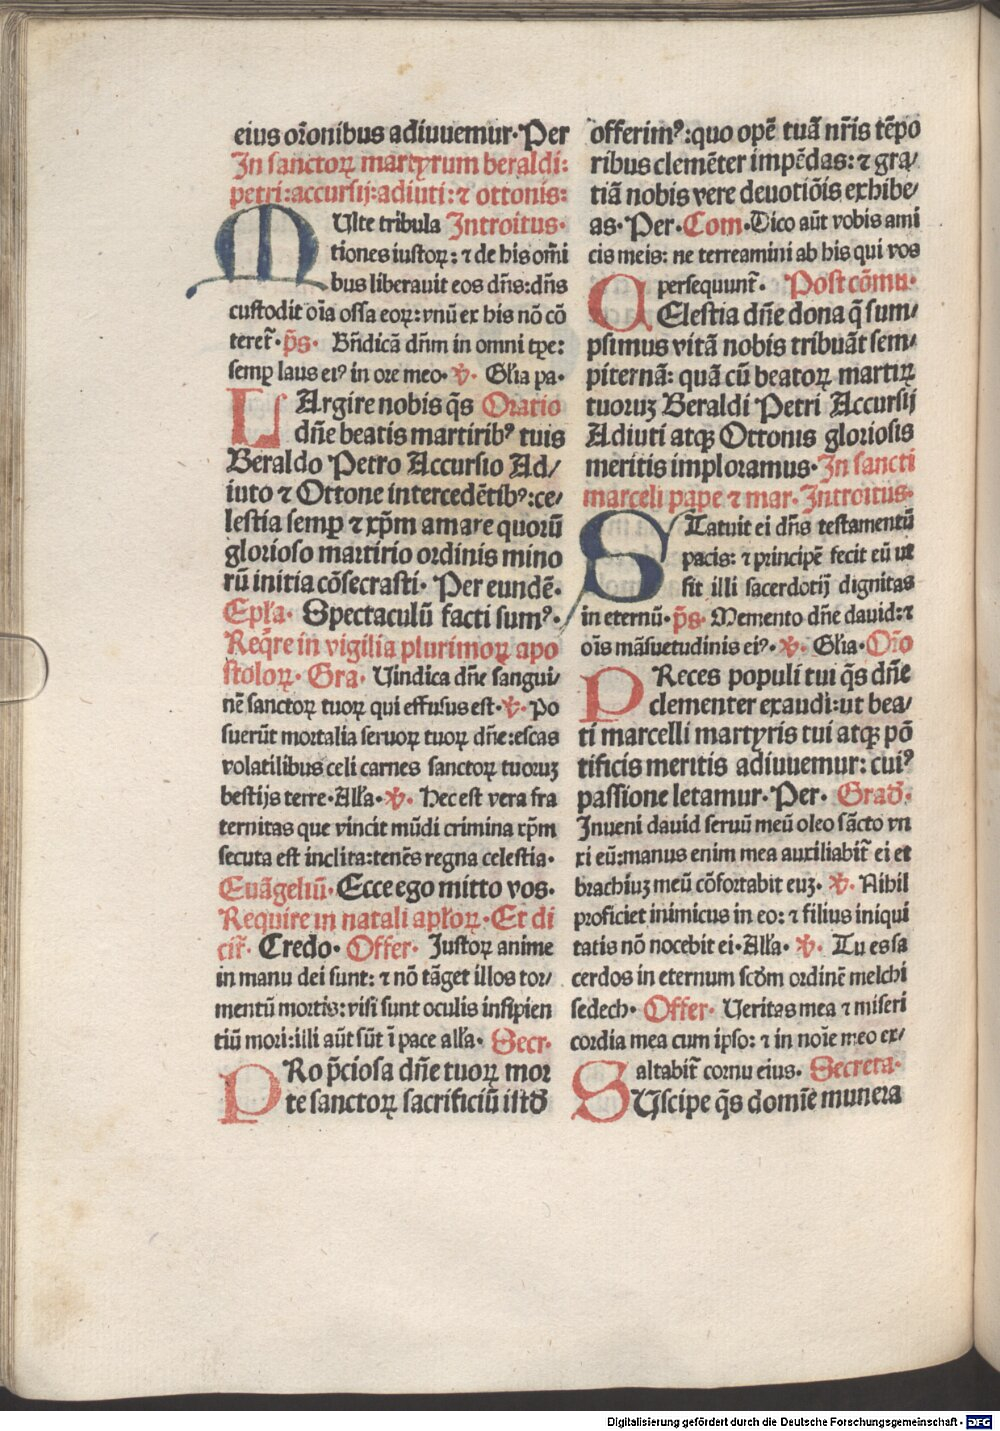 eius or̃onibus adiuuemur. Per
In sanctoꝝ martyrum beraldi:
petri:accursij:adiuti:⁊ ottonis:
MUlte tribula Introitus.
tiones iustoꝝ: ⁊ de his om̃i
bus liberauit eos dñs:dñs
custodit oĩa ossa eoꝝ:vnũ ex his nõ cõ
teret̃. p̃s. Bñdicã dñm in omni tꝑe:
semꝑ laus eiꝰ in ore meo. ℣. Gl̃ia pa.
LArgire nobis q̃s Oratio
dñe beatis martiribꝰ tuis
Beraldo Petro Accursio Ad/
iuto ⁊ Ottone intercedẽtibꝰ:ce/
lestia semꝑ ⁊ xp̃m amare quorũ
glorioso martirio ordinis mino
rũ initia cõsecrasti. Per eundẽ.
Epl̃a. Spectaculũ facti sumꝰ.
Req̃re in vigilia plurimoꝝ apo
stoloꝝ. Gra. Uindica dñe sangui/
nẽ sanctoꝝ tuoꝝ qui effusus est. ℣. Po
suerũt mortalia seruoꝝ tuoꝝ dñe:escas
volatilibus celi carnes sanctoꝝ tuoruꝫ
bestijs terre. All̃a. ℣. Hec est vera fra
ternitas que vincit mũdi crimina xp̃m
secuta est inclita:tenẽs regna celestia.
Euãgeliũ. Ecce ego mitto vos.
Require in natali apl̃oꝝ. Et di
cit̃. Credo. Offer. Iustoꝝ anime
in manu dei sunt: ⁊ nõ tãget illos tor/
mentũ mortis: visi sunt oculis insipien
tiũ mori:illi aũt sũt ĩ pace all̃a. Secr.
PRo p̃ciosa dñe tuoꝝ mor
te sanctoꝝ sacrificiũ istđ
offerimꝰ:quo opẽ tuã nr̃is tẽpo
ribus clemẽter impẽdas: ⁊ gra/
tiã nobis vere deuotiõis exhibe/
as. Per. Com. Dico aũt vobis ami
cis meis: ne terreamini ab his qui vos
persequunt̃. Post cõmu.
CElestia dñe dona q̃ sum/
psimus vitã nobis tribuãt sem/
piternã: quã cũ beatoꝝ martirꝝ
tuoruꝫ Beraldi Petri Accursij
Adiuti atqꝫ Ottonis gloriosis
meritis imploramus. In sancti
marceli pape ⁊ mar. Introitus.
STatuit ei dñs testamentũ
pacis: ⁊ principẽ fecit eũ ut
sit illi sacerdotij dignitas
in eternũ. p̃s. Memento dñe dauid:⁊
oĩs mãsuetudinis eiꝰ. ℣. Gl̃ia. Or̃o
PReces populi tui q̃s dñe
clementer exaudi:ut bea/
ti marcelli martyris tui atqꝫ põ
tificis meritis adiuuemur: cuiꝰ
passione letamur. Per. Građ.
Inueni dauid seruũ meũ oleo sãcto vn
xi eũ:manus enim mea auxiliabit̃ ei et
brachiuꝫ meũ cõfortabit euꝫ. ℣. Nihil
proficiet inimicus in eo: ⁊ filius iniqui
tatis nõ nocebit ei. All̃a. ℣. Tu es sa
cerdos in eternum scđm ordinẽ melchi
sedech. Offer. Ueritas mea ⁊ miseri
cordia mea cum ipso: ⁊ in noĩe meo ex/
altabit̃ cornu eius. Secreta.
SUscipe q̃s domĩe munera
Digitalisierung gefördert durch die Deutsche Forschungsgemeinschaft - DFG